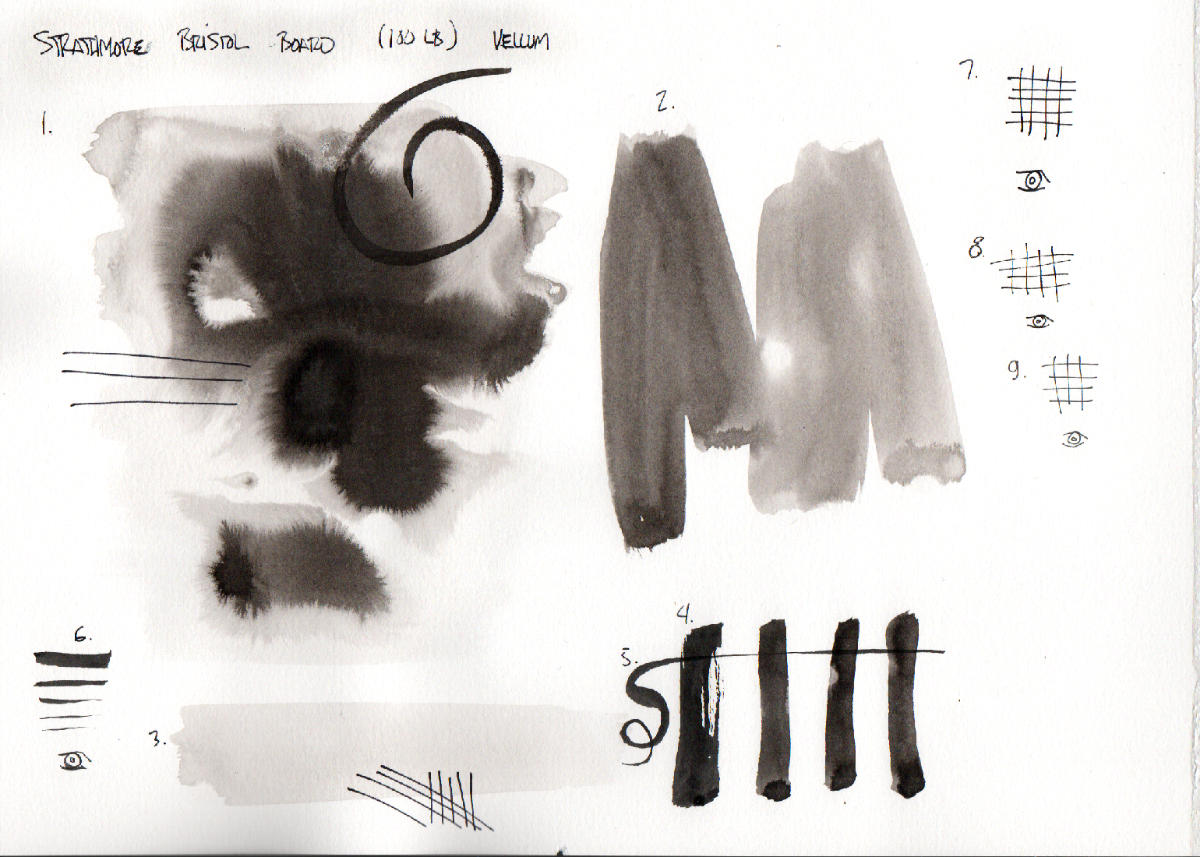 STRATHMORE BRISTOL BOARD (100 LB) VELLUM
1.
2.
7.
8.
9.
4.
5.
6.
3.